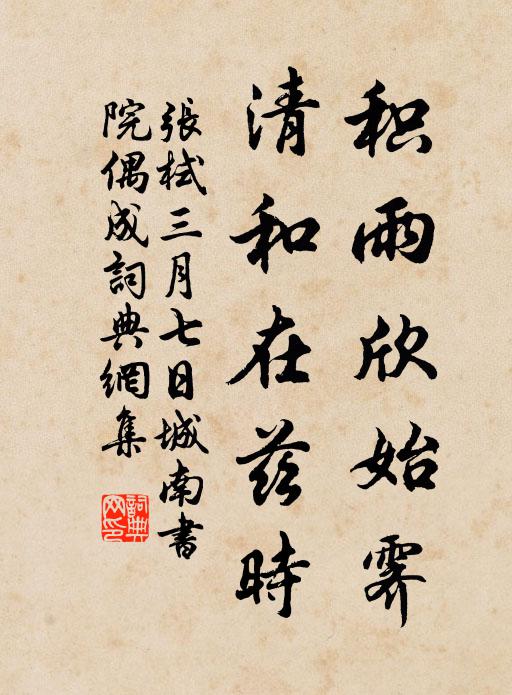 积雨欣始霁
清和在兹時
張栻三月七日城南書
院偶成詞典網集
詞典
网印